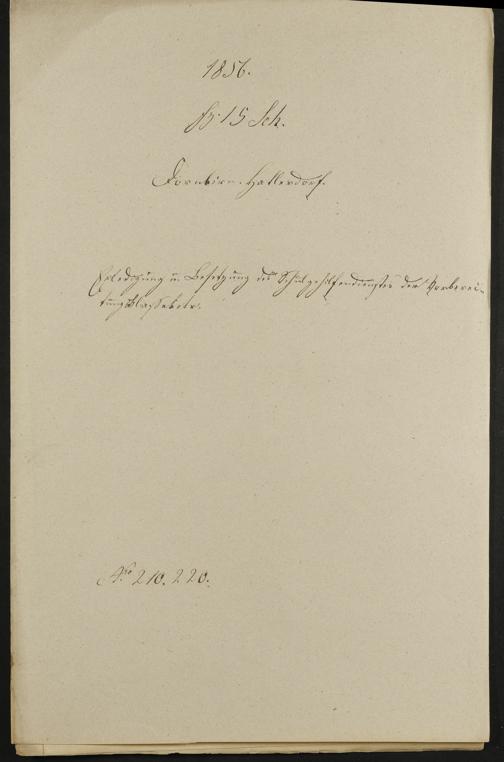 1856.
15 Sch.
Dornbirn-Hatlerdorf.
Erledigung u. Besetzung des Schulgehilfendienstes der Vorberei-
tungsklasse betr.
No 210. 220.